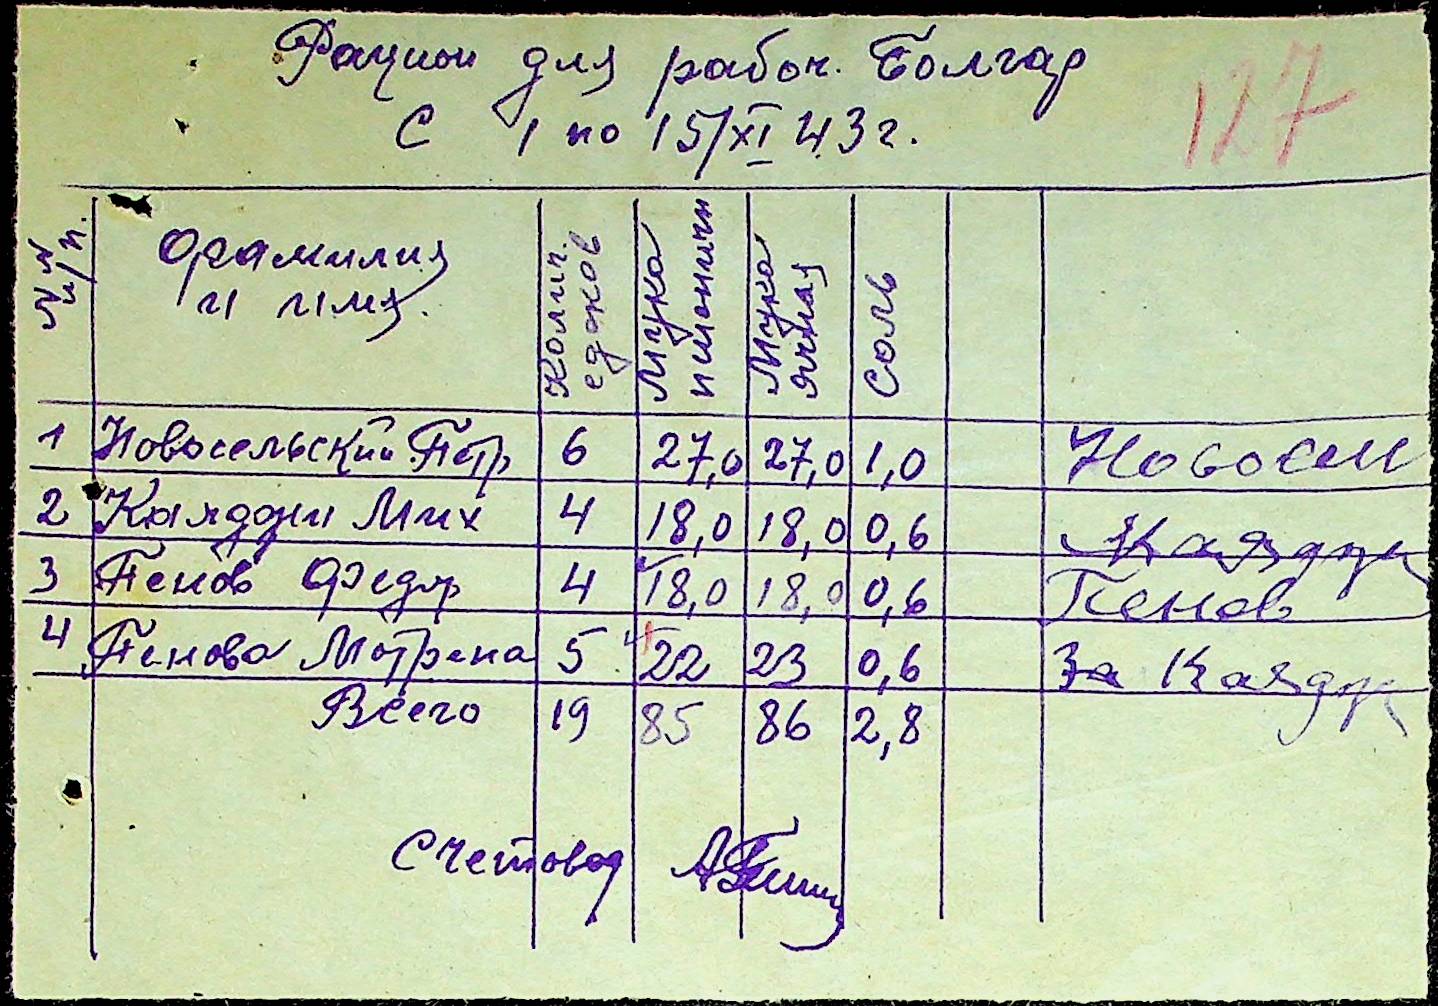 Рацион для рабоч. Болгар
127
С 1 по 15/XI 43 г.
№№ п/п. Фамилия и имя. Колич. едоков Мука пшеничн Мука ячная Соль
1 Новосельский Петр 6 27,0 27,0 1,0 Новосел
2 Каяджи Мих 4 18,0 18,0 0,6 Каяджи
3 Пенов Федр 4 18,0 18,0 0,6 Пенов
4 Пенова Мотрена 5 22 23 0,6 За Каяджи
Всего 19 85 86 2,8
Счетовод